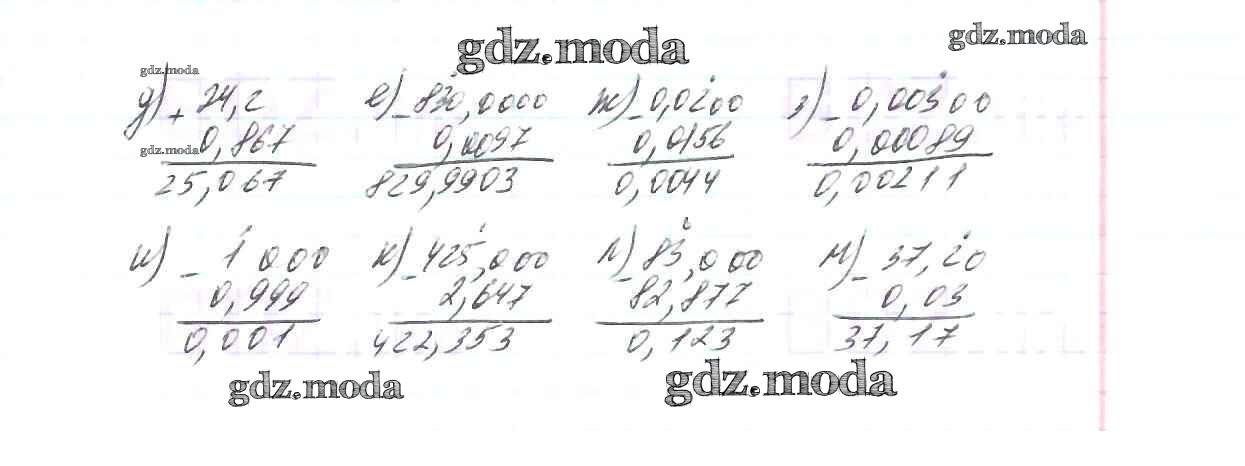 gdz.moda gdz.moda
gdz.moda
д) + 24,2 е) - 830,0000 ж) - 0,0200 з) - 0,00300
0,867 0,0097 0,0156 0,00089
gdz.moda
25,067 829,9903 0,0044 0,00211
и) - 1 000 к) - 425,000 л) - 83,000 м) - 37,20
0,999 2,647 82,877 0,03
0,001 422,353 0,123 37,17
gdz.moda gdz.moda